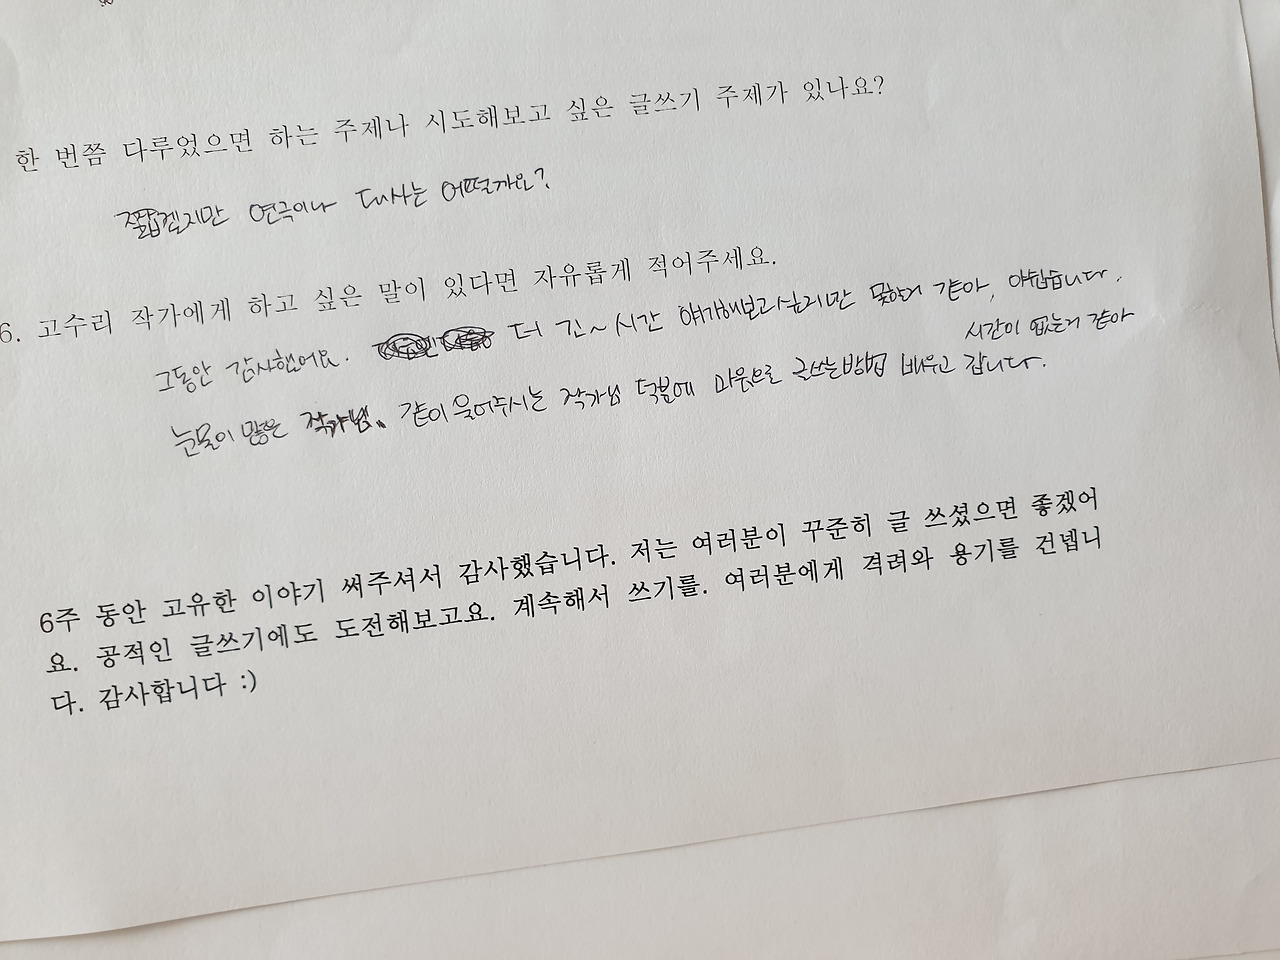 한 번쯤 다루었으면 하는 주제나 시도해보고 싶은 글쓰기 주제가 있나요?
짧겠지만 연극이나 대사는 어떨까요?
6. 고수리 작가에게 하고 싶은 말이 있다면 자유롭게 적어주세요.
그동안 감사했어요. 더 긴~ 시간 얘기해보고싶지만 못할거 같아, 아쉽습니다.
시간이 없는거 같아
눈물이 많은 작가님, 같이 울어주시는 작가님 덕분에 마음으로 글쓰는방법 배우고 갑니다.
6주 동안 고유한 이야기 써주셔서 감사했습니다. 저는 여러분이 꾸준히 글 쓰셨으면 좋겠어
요. 공적인 글쓰기에도 도전해보고요. 계속해서 쓰기를. 여러분에게 격려와 용기를 건넵니
다. 감사합니다 :)